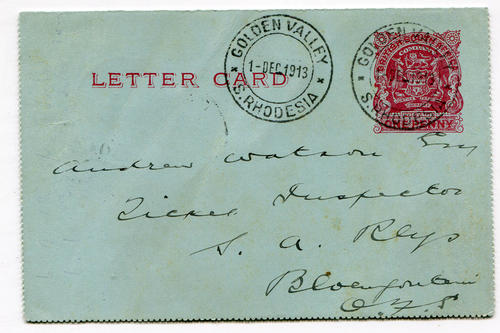 GOLDEN VALLEY
1-DEC.1913
S. RHODESIA
GOLDEN VALLEY
BRITISH SOUTH AFRICA
COMPANY
1-DEC.1913
S. RHODESIA
ONE PENNY
LETTER CARD
Andrew Watson Esq
Ticket Inspector
S. A. Rlys
Bloemfontein
O.F.S.